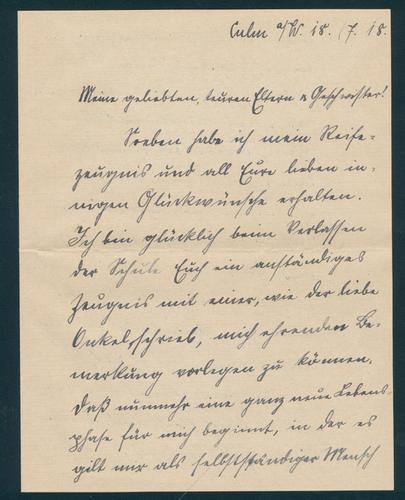 Culm a/W. 18. 7. 18.
Meine geliebten, teuren Eltern u Geschwister!
Soeben habe ich mein Reife-
zeugnis und all Eure lieben in-
nigen Glückwünsche erhalten.
Ich bin glücklich beim Verlassen
der Schule Euch ein anständiges
Zeugnis mit einer, wie der liebe
Onkel schrieb, mich ehrenden Be-
merkung vorlegen zu können.
Daß nunmehr eine ganz neue Lebens-
phase für mich beginnt, in der es
gilt nur als selbstständiger Mensch